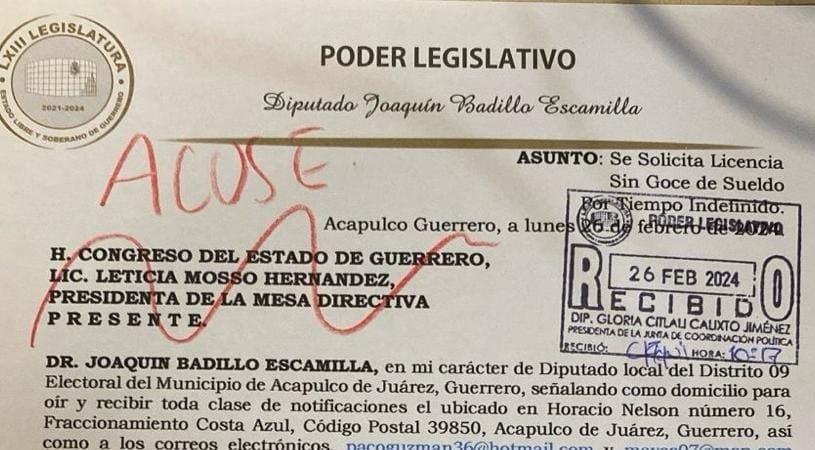 LXIII LEGISLATURA
2021-2024
ESTADO LIBRE Y SOBERANO DE GUERRERO
PODER LEGISLATIVO
Diputado Joaquín Badillo Escamilla
ACUSE
ASUNTO: Se Solicita Licencia
Sin Goce de Sueldo
Por Tiempo Indefinido.
Acapulco Guerrero, a lunes 26 de febrero de 2024.
PODER LEGISLATIVO
26 FEB 2024
RECIBIDO
DIP. GLORIA CITLALI CALIXTO JIMÉNEZ
PRESIDENTA DE LA JUNTA DE COORDINACIÓN POLÍTICA
RECIBIÓ: HORA: 10:17
H. CONGRESO DEL ESTADO DE GUERRERO,
LIC. LETICIA MOSSO HERNANDEZ,
PRESIDENTA DE LA MESA DIRECTIVA
P R E S E N T E.
DR. JOAQUIN BADILLO ESCAMILLA, en mi carácter de Diputado local del Distrito 09
Electoral del Municipio de Acapulco de Juárez, Guerrero, señalando como domicilio para
oír y recibir toda clase de notificaciones el ubicado en Horacio Nelson número 16,
Fraccionamiento Costa Azul, Código Postal 39850, Acapulco de Juárez, Guerrero, así
como a los correos electrónicos, pacoguzman36@hotmail.com y